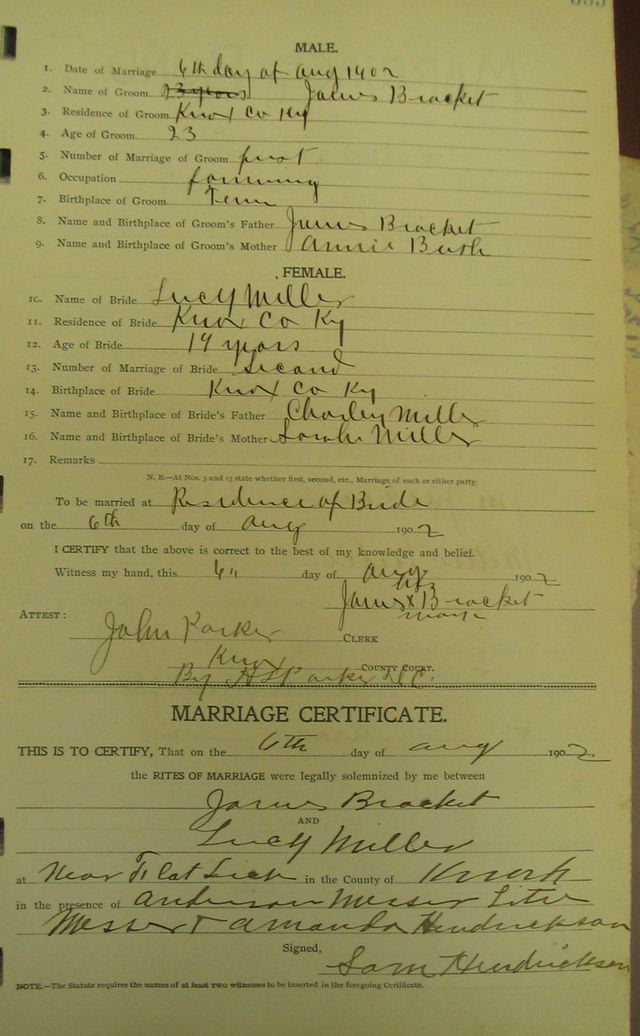 MALE.
1. Date of Marriage 6th day of aug 1902
2. Name of Groom 23 years James Bracket
3. Residence of Groom Knox Co Ky
4. Age of Groom 23
5. Number of Marriage of Groom first
6. Occupation farming
7. Birthplace of Groom Tenn
8. Name and Birthplace of Groom's Father James Bracket
9. Name and Birthplace of Groom's Mother Annie Bush
FEMALE.
10. Name of Bride Lucy Miller
11. Residence of Bride Knox Co Ky
12. Age of Bride 19 years
13. Number of Marriage of Bride Second
14. Birthplace of Bride Knox Co Ky
15. Name and Birthplace of Bride's Father Charley Miller
16. Name and Birthplace of Bride's Mother Miller
17. Remarks
N. B.—At Nos. 5 and 13 state whether first, second, etc., Marriage of each or either party
To be married at Residence of Bride
on the 6th day of aug 1902
I CERTIFY that the above is correct to the best of my knowledge and belief.
Witness my hand, this 6 day of aug 1902
his
James x Bracket
mark
ATTEST:
John Parker CLERK
Knox COUNTY COURT.
By Parker D.C.
MARRIAGE CERTIFICATE.
THIS IS TO CERTIFY, That on the 6th day of aug 1902.
the RITES OF MARRIAGE were legally solemnized by me between
James Bracket
AND
Lucy Miller
at Near Flat Lick in the County of
in the presence of anderson Messer
Messer & amanda Hendrickson
Signed,
Sam Hendrickson
NOTE.—The Statute requires the names of at least two witnesses to be inserted in the foregoing Certificate.